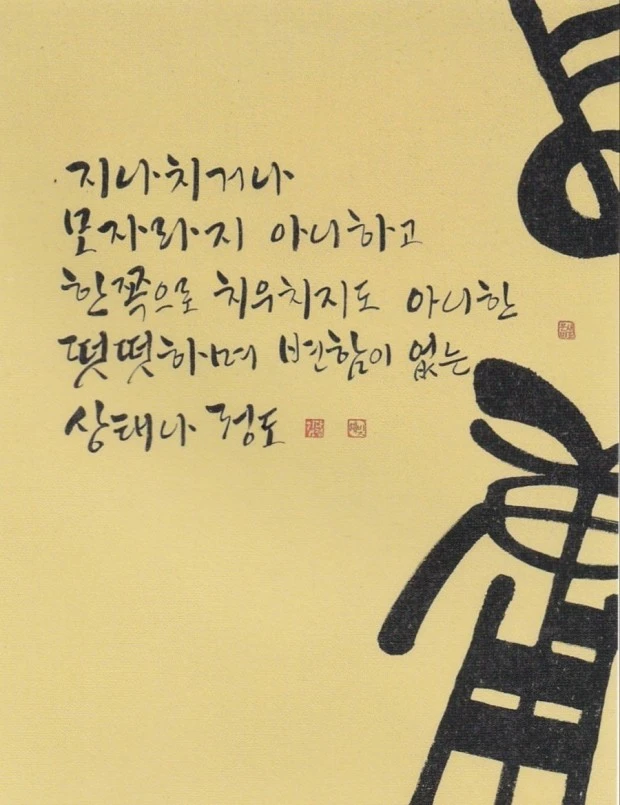 지나치거나
모자라지 아니하고
한쪽으로 치우치지도 아니한
떳떳하며 변함이 없는
상태나 정도